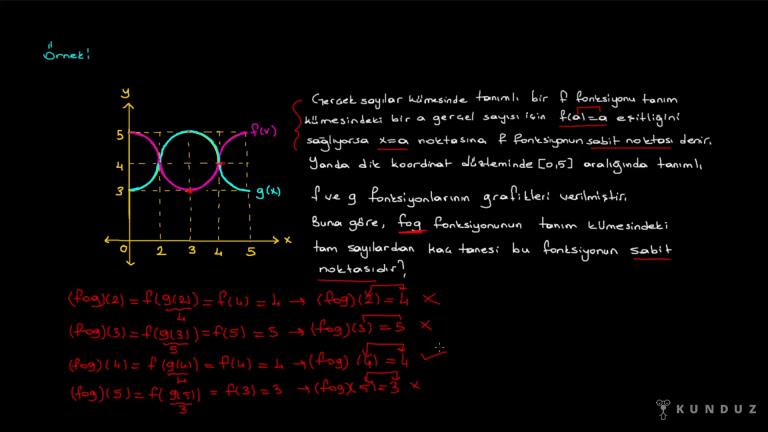 Örnek:
y
5
4
3
0
2
3
4
5
x
f(x)
g(x)
Gerçek sayılar kümesinde tanımlı bir f fonksiyonu tanım
kümesindeki bir a gerçel sayısı için f(a)=a eşitliğini
sağlıyorsa x=a noktasına f fonksiyonun sabit noktası denir.
Yanda dik koordinat düzleminde [0,5] aralığında tanımlı
f ve g fonksiyonlarının grafikleri verilmiştir.
Buna göre, fog fonksiyonunun tanım kümesindeki
tam sayılardan kaç tanesi bu fonksiyonun sabit
noktasıdır?
(fog)(2) = f(g(2)) = f(4) = 4 → (fog)(2) = 4 ×
4
(fog)(3) = f(g(3)) = f(5) = 5 → (fog)(3) = 5 ×
5
(fog)(4) = f(g(4)) = f(4) = 4 → (fog)(4) = 4 ✓
4
(fog)(5) = f(g(5)) = f(3) = 3 → (fog)(5) = 3 ×
3
KUNDUZ